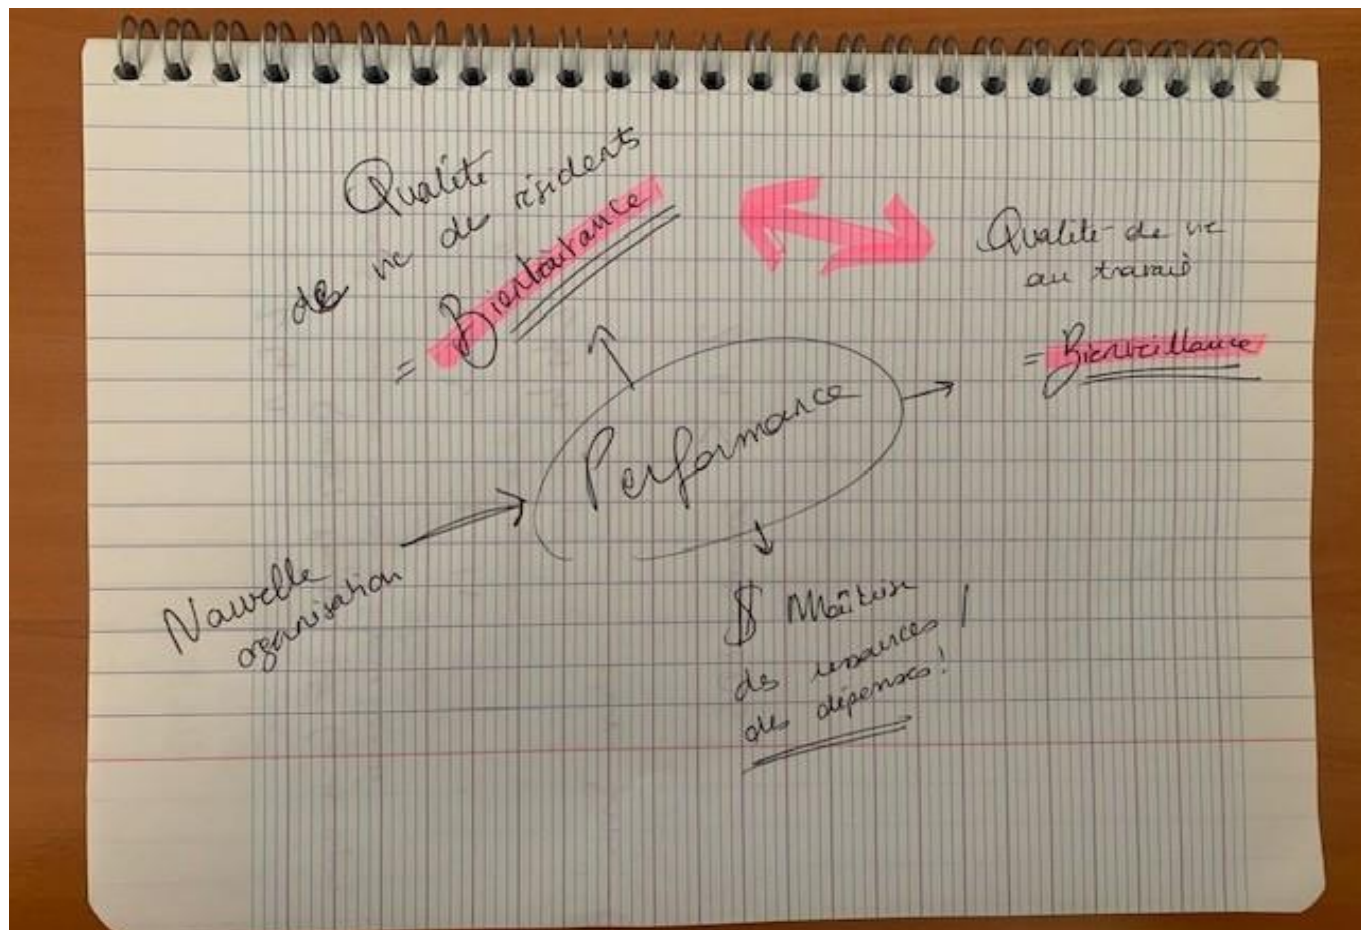 Qualité
de vie de résidents
= Bientraitance
Qualité de vie
au travail
= Bienveillance
Performance
Nouvelle
organisation
$ Maîtrise
des ressources /
des dépenses !